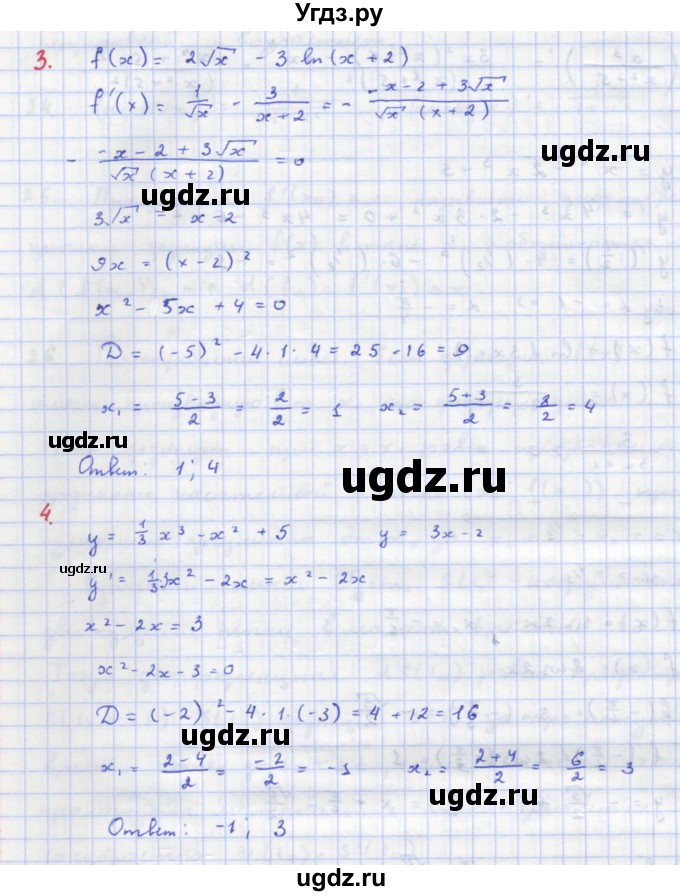 Угдз.ру
3. f(x) = 2√x - 3 ln(x+2)
f'(x) = 1/√x - 3/(x+2) = - (-x-2+3√x)/(√x (x+2))
- (-x-2+3√x)/(√x (x+2)) = 0
ugdz.ru ugdz.ru
3√x = - x-2
9x = (x-2)²
x² - 5x + 4 = 0
D = (-5)² - 4·1·4 = 25-16 = 9
x₁ = (5-3)/2 = 2/2 = 1 x₂ = (5+3)/2 = 8/2 = 4
ugdz.ru
Ответ: 1; 4
ugdz.ru
4.
y = 1/3 x³ - x² + 5 y = 3x-2
ugdz.ru
y' = 1/3 3x² - 2x = x² - 2x
x² - 2x = 3
x² - 2x - 3 = 0
D = (-2)² - 4·1·(-3) = 4+12 = 16
ugdz.ru
x₁ = (2-4)/2 = -2/2 = -1 x₂ = (2+4)/2 = 6/2 = 3
ugdz.ru
Ответ: -1; 3
ugdz.ru